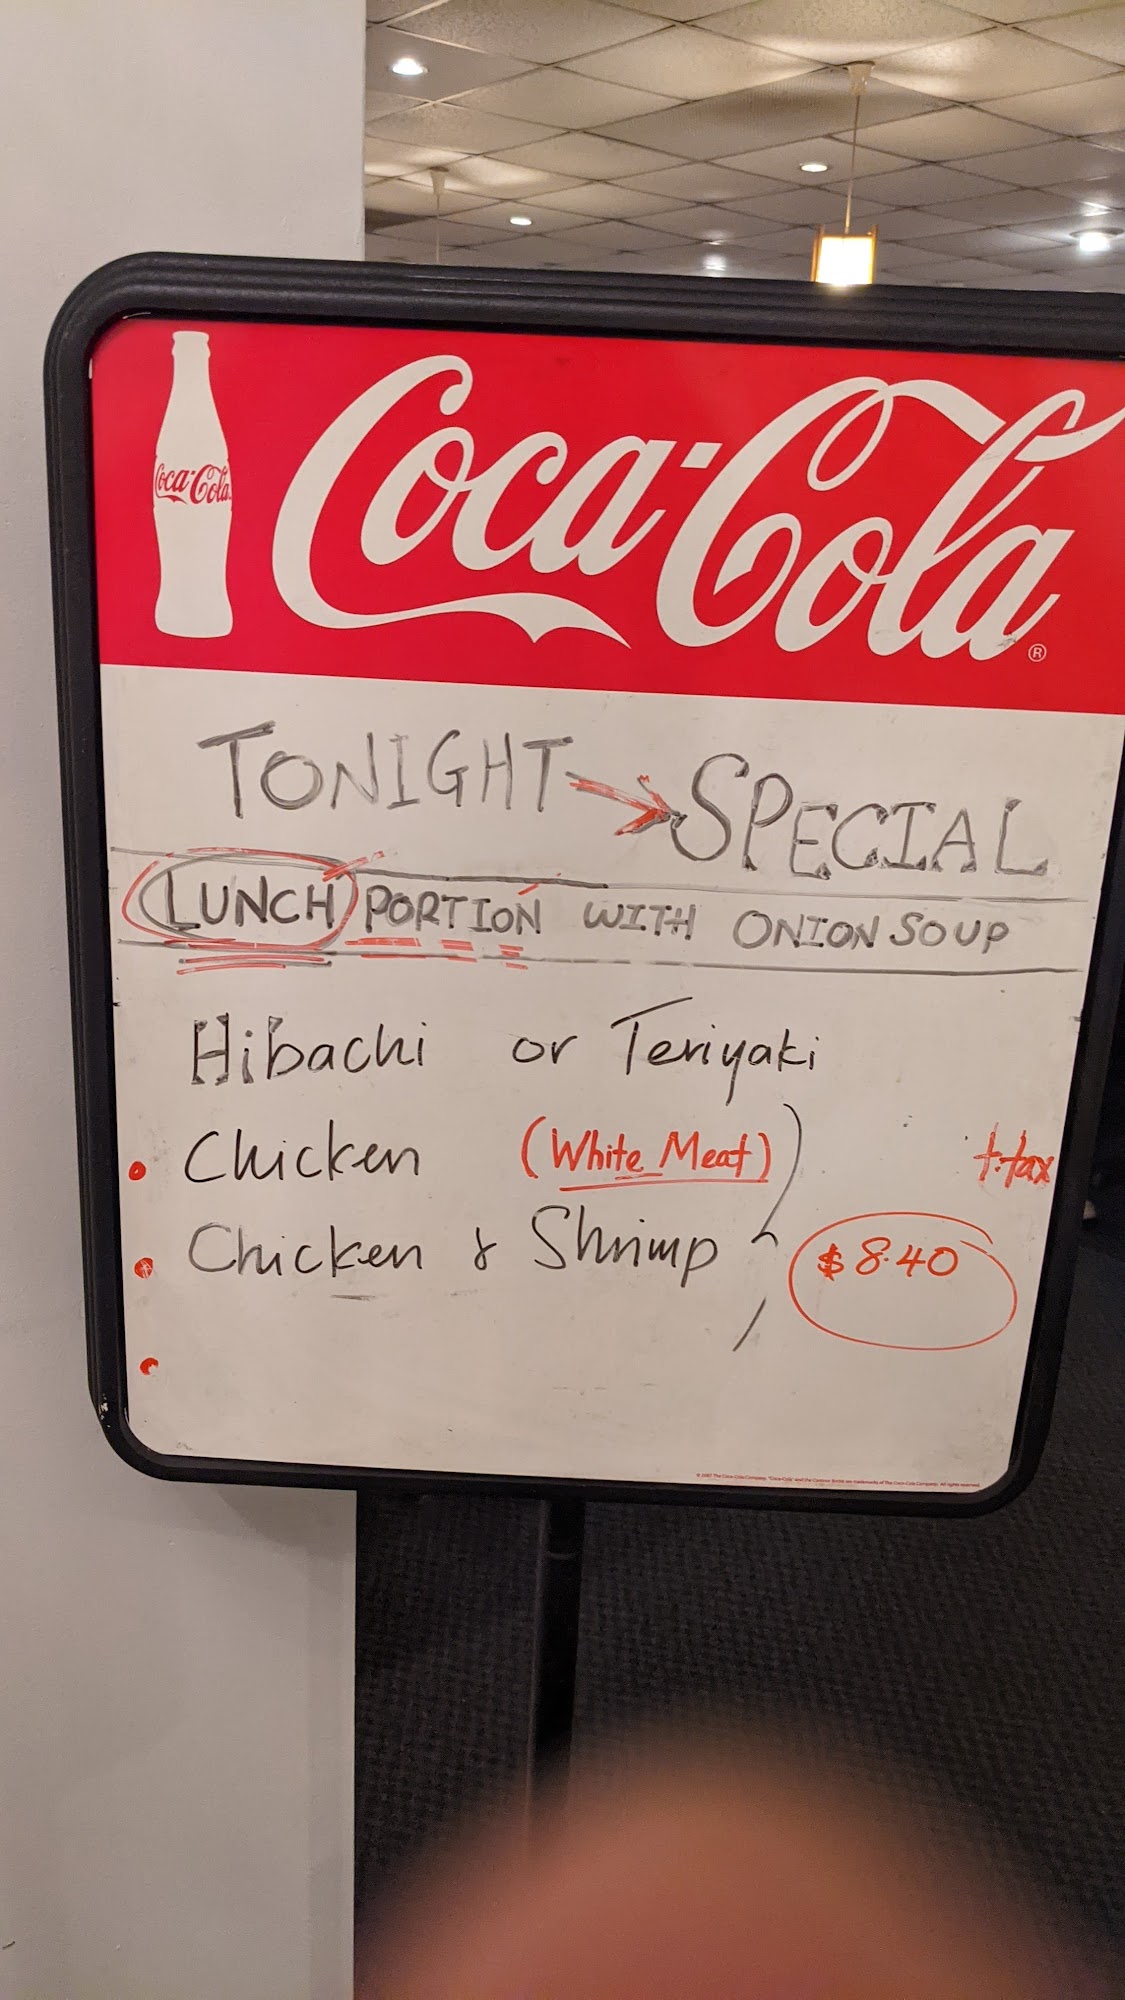 Coca-Cola
Coca-Cola ®
TONIGHT → SPECIAL
LUNCH PORTION WITH ONION SOUP
Hibachi or Teriyaki
• Chicken (White Meat) + tax
• Chicken & Shrimp $8.40
•